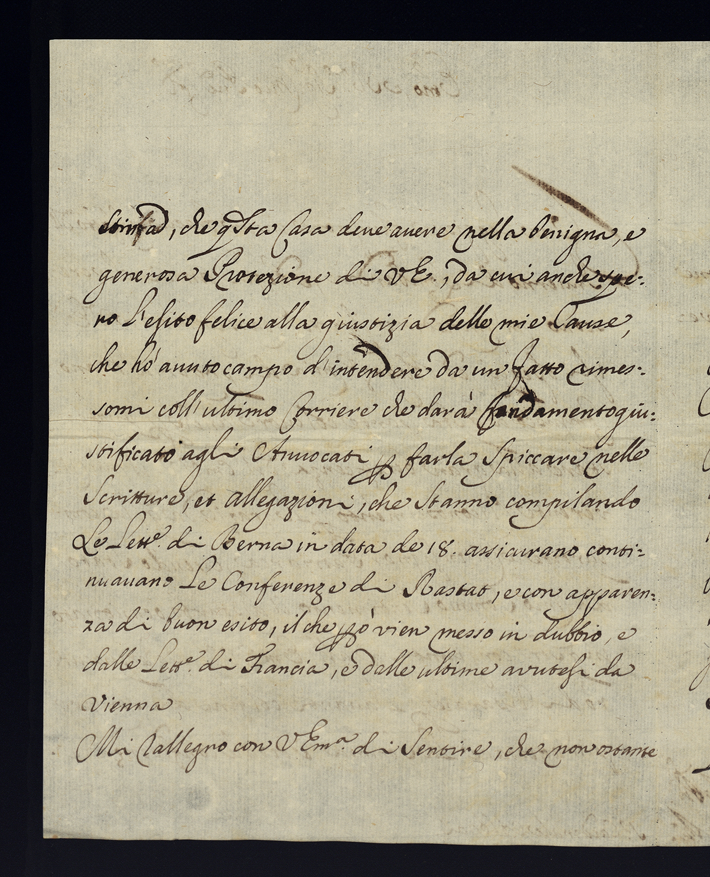 che qsta Casa deve avere nella benigna, e
generosa Protezione di VE., da cui anche spe-
ro l'esito felice alla giustizia delle mie Cause,
che hò avuto campo d'intendere da un fatto rimes-
somi coll'ultimo Corriere che darà fondamento giu-
stificato agli Avvocati p farla spiccare nelle
Scritture, et allegazioni, che stanno compilando
Le Lett.e di Berna in data de 18. assicurano conti-
nuavano Le Conferenze di Rastat, e con apparen-
za di buon esito, il che pò vien messo in dubbio, e
dalle Lett.e di Francia, e dalle ultime avutesi da
Vienna
Mi rallegro con VEm.a di Sentire, che non ostante